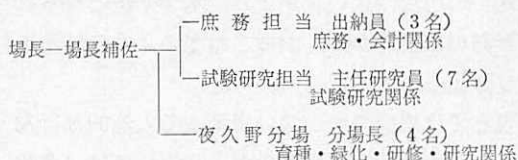 庶務担当 出納員（3名）
庶務・会計関係
場長―場長補佐
試験研究担当 主任研究員（7名）
試験研究関係
夜久野分場 分場長（4名）
育種・緑化・研修・研究関係